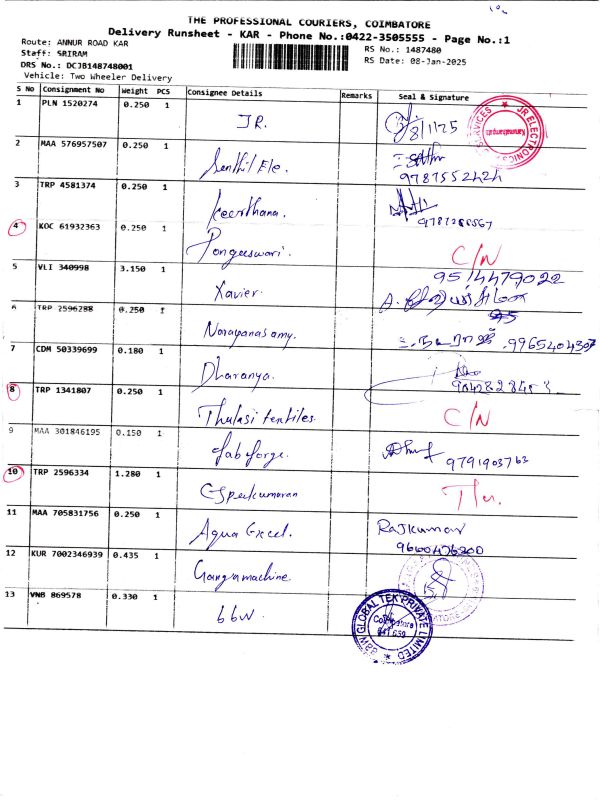 THE PROFESSIONAL COURIERS, COIMBATORE
Delivery Runsheet - KAR - Phone No.:0422-3505555 - Page No.:1
Route: ANNUR ROAD KAR
RS No.: 1487480
Staff: SRIRAM
RS Date: 08-Jan-2025
DRS No.: DCJB148748001
Vehicle: Two Wheeler Delivery
S No Consignment No Weight PCS Consignee Details Remarks Seal & Signature
1 PLN 1520274 0.250 1 JR. 8/1/25
JR ELECTRONICS SERVICES
2 MAA 576957507 0.250 1 Senthil Ele.
9787552424
3 TRP 4581374 0.250 1 Keerthana.
4 KOC 61932363 0.250 1 Pongeeswari. C/N
5 VLI 340998 3.150 1 Xavier. 9514479022
6 TRP 2596288 0.250 1 Narayanasamy. 9965404307
7 CDM 50339699 0.180 1 Dharanya.
8 TRP 1341807 0.250 1 Thulasi textiles. C/N
9 MAA 301846195 0.150 1 fabforge. 9791903763
10 TRP 2596334 1.280 1
11 MAA 705831756 0.250 1 Aqua Excel. Rajkumar
9600476200
12 KUR 7002346939 0.435 1 Ganga machine.
13 VNB 869578 0.330 1 bbw
BBW GLOBAL TEK PRIVATE LIMITED
Coimbatore
641 659